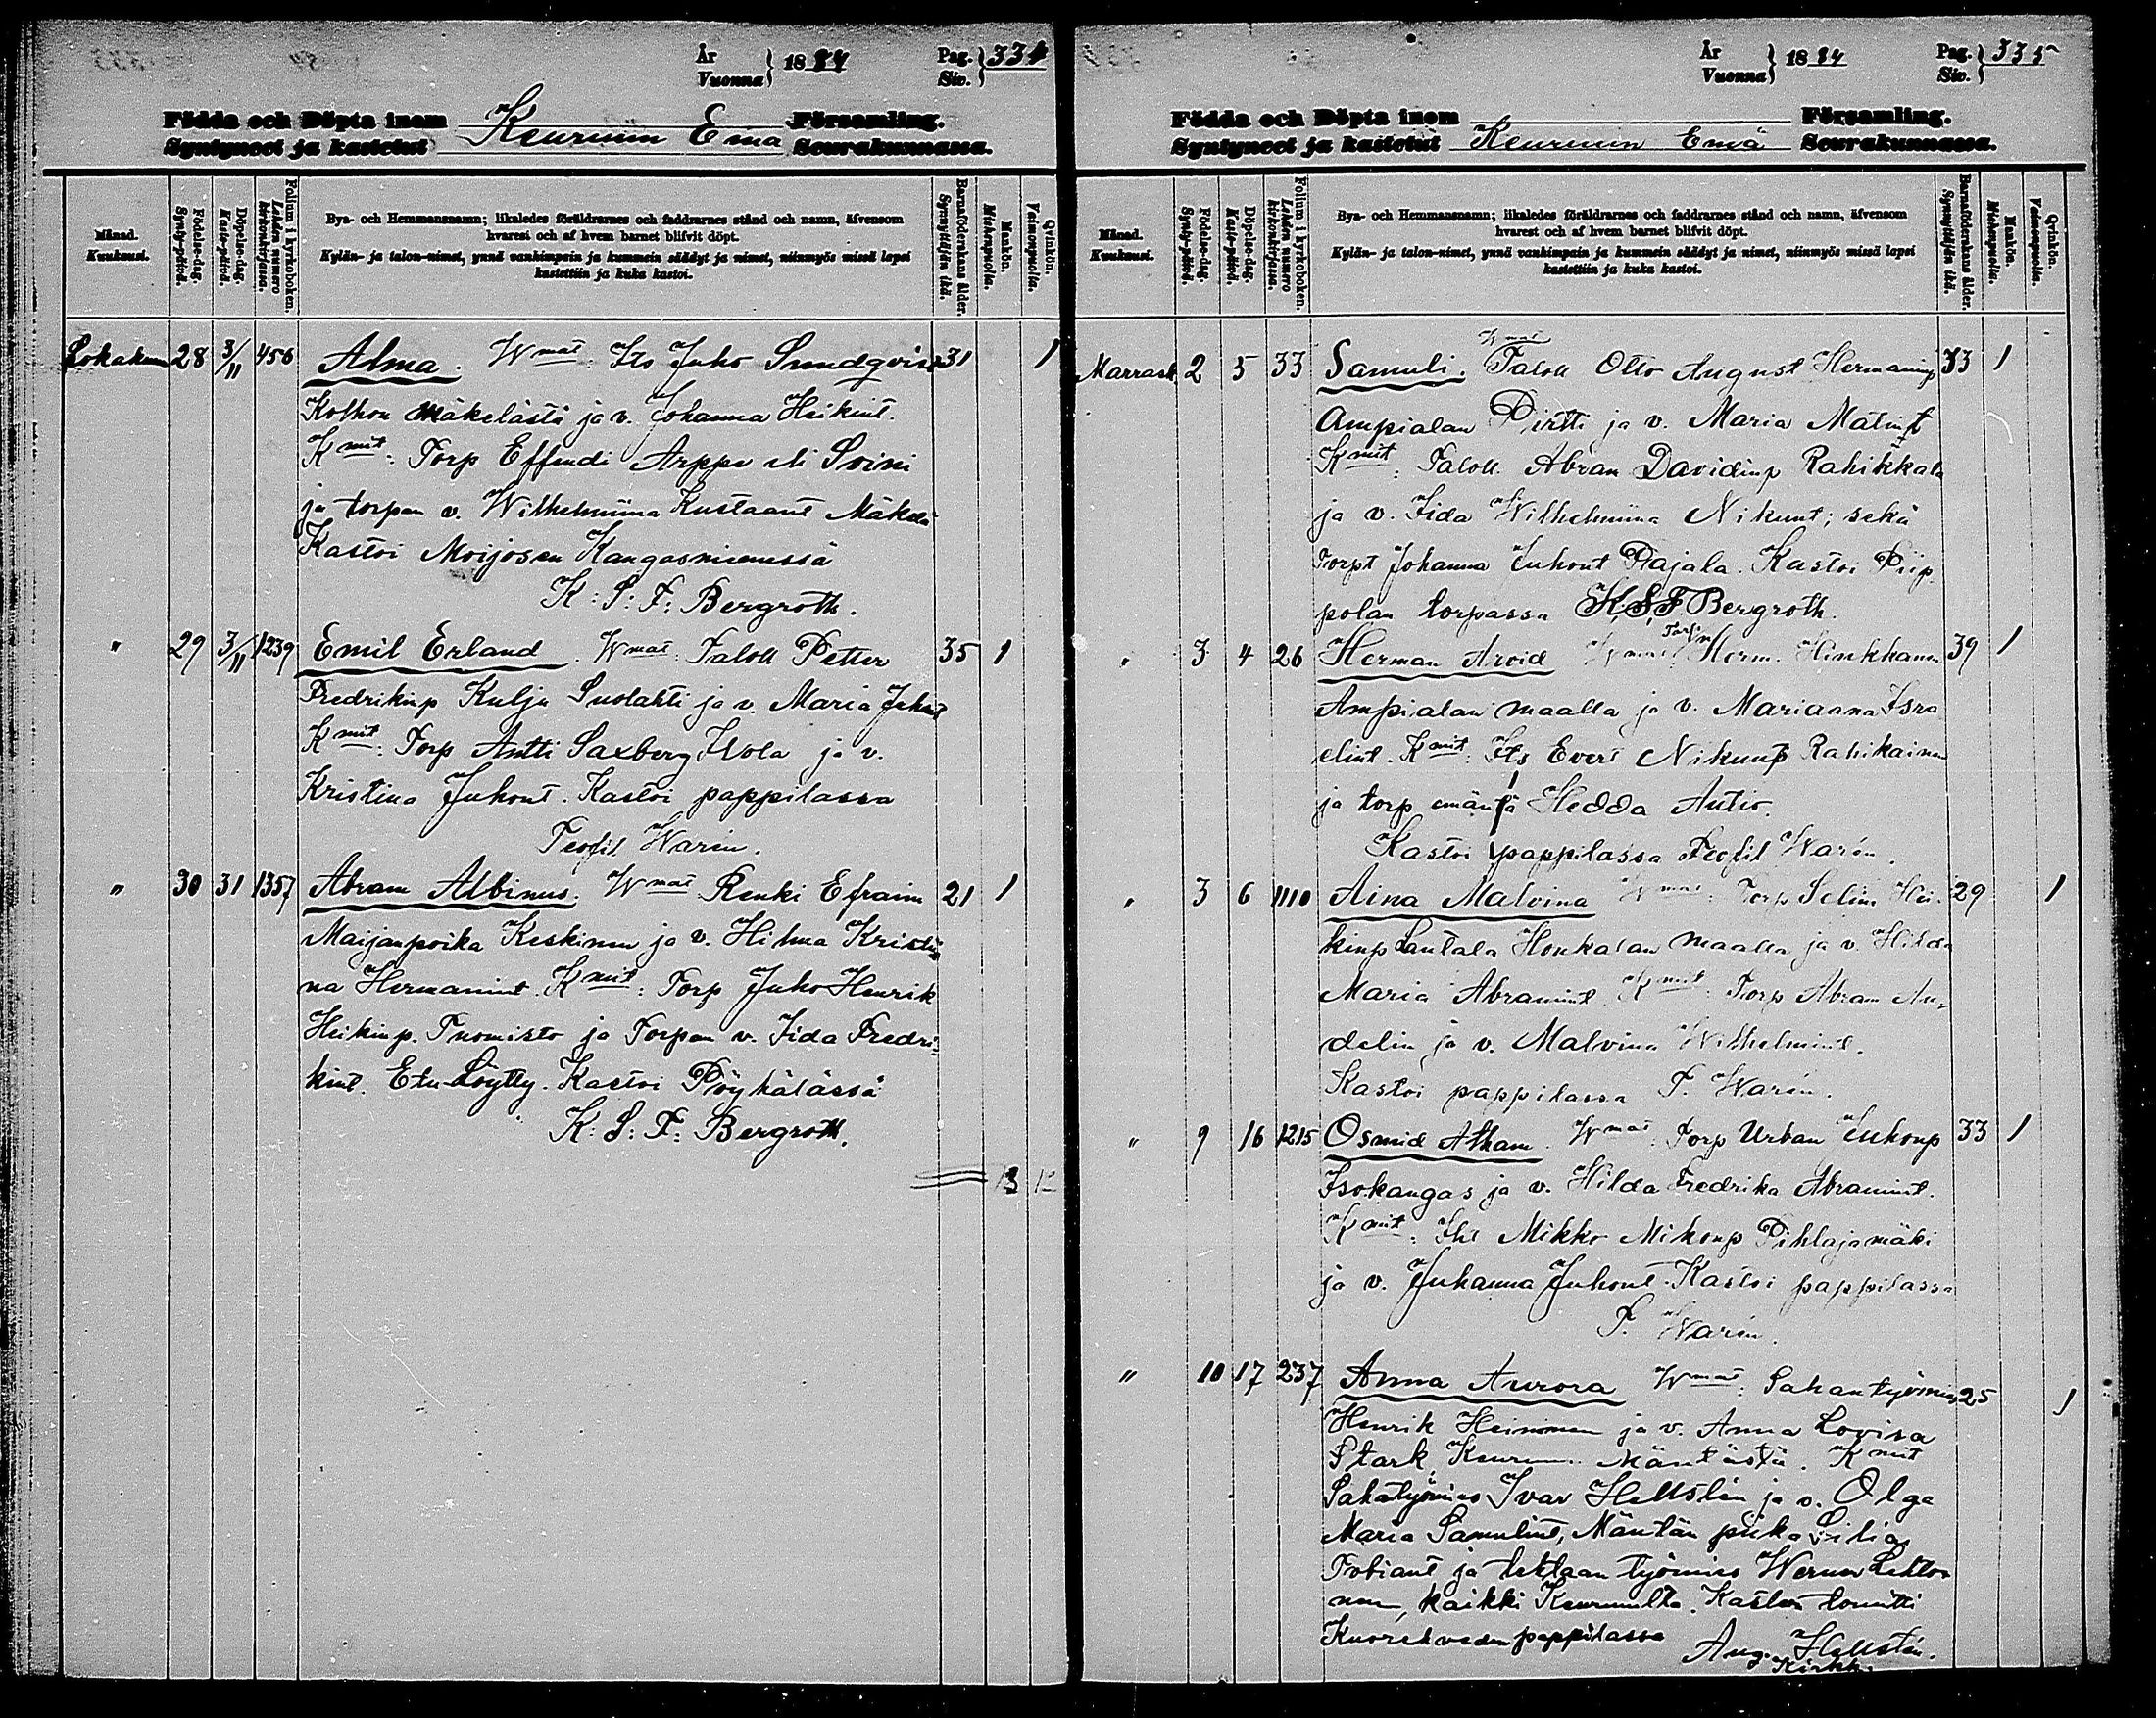 År
Vuonna } 1884
Pag.
Siv. } 334
Födda och Döpta inom Församling.
Syntyneet ja kastetut Keuruun Emä Seurakunnassa.
Månad.
Kuukausi.
Födelse-dag.
Synty-päivä.
Döpelse-dag.
Kaste-päivä.
Folium i kyrkoboken.
Lehden numero kirkonkirjassa.
Bya- och Hemmansnamn; likaledes föräldrarnes och faddrarnes stånd och namn, äfvensom
hvarest och af hvem barnet blifvit döpt.
Kylän- ja talon-nimet, ynnä vanhimpain ja kummein säädyt ja nimet, niinmyös missä lapsi
kastettiin ja kuka kastoi.
Barnaföderskans ålder.
Synnyttäjän ikä.
Mankön.
Miehenpuolia.
Qvinkön.
Vaimonpuolia.
Lokakuun 28 3/11 456 Alma. Wmat: Its Juho Sundqvist 31 1
Kolhon Mäkelästä ja v. Johanna Heikint.
Kmit: Torp Effendi Arppe eli Soini
ja torpan v. Wilhelmiina Kustaant Mäkelä
Kastoi Moijosen Kangasniemessä
K: S: F: Bergroth.
" 29 3/11 1239 Emil Erland. Wmat: Taloll Petter 35 1
Fredrikinp Kulju Suolahti ja v. Maria Juhont
Kmit: Torp Antti Saxberg Ilola ja v.
Kristina Juhont. Kastoi pappilassa
Teofil Warén.
" 30 31 1357 Abram Albinus. Wmat Renki Efraim 21 1
Maijanpoika Keskinen ja v. Hilma Kristii
na Hermanint. Kmit: Torp Juho Henrik
Heikinp. Tuomisto ja Torpan v. Iida Fredri-
kint. Etu-Löytty. Kastoi Pöyhälässä
K: S: F: Bergroth.
13 12
År
Vuonna } 1884
Pag.
Siv. } 335
Födda och Döpta inom Församling.
Syntyneet ja kastetut Keuruun Emä Seurakunnassa.
Månad.
Kuukausi.
Födelse-dag.
Synty-päivä.
Döpelse-dag.
Kaste-päivä.
Folium i kyrkoboken.
Lehden numero kirkonkirjassa.
Bya- och Hemmansnamn; likaledes föräldrarnes och faddrarnes stånd och namn, äfvensom
hvarest och af hvem barnet blifvit döpt.
Kylän- ja talon-nimet, ynnä vanhimpain ja kummein säädyt ja nimet, niinmyös missä lapsi
kastettiin ja kuka kastoi.
Barnaföderskans ålder.
Synnyttäjän ikä.
Mankön.
Miehenpuolia.
Qvinkön.
Vaimonpuolia.
Marrask 2 5 33 Samuli. Wmat Taloll Otto August Hermaninp 33 1
Ampialan Pirtti ja v. Maria Matint
Kmit: Taloll. Abram Davidinp Rahikkala
ja v. Iida Wilhelmiina Nikunt; sekä
Torpt Johanna Juhont Pajala. Kastoi Piip-
polan torpassa K. S. F. Bergroth.
" 3 4 26 Herman Arvid Wmat: Torp. Herm. Hinkkanen 39 1
Ampialan maalla ja v. Marianna Isra
elint. Kmit: Its Evert Nikunp Rahikainen
ja torp emäntä Hedda Autio.
Kastoi pappilassa Teofil Warén.
" 3 6 1110 Aina Malvina Wmat: Torp Selim Hei- 29 1
kinp Lautala Honkalan maalla ja v. Hilda
Maria Abramint Kmit Torp Abram An-
delin ja v. Malvina Wilhelmint.
Kastoi pappilassa T. Warén.
" 9 16 1215 Osmid Atham. Wmat: Torp Urban Juhonp 33 1
Isokangas ja v. Hilda Fredrika Abramint.
Kmit: Mikko Mikonp Pihlajamäki
ja v. Juhanna Juhont. Kastoi pappilassa
T. Warén.
" 10 17 237 Anna Aurora Wmat: Sahantyömies 25 1
Henrik Heinonen ja v. Anna Lovisa
Stark, Keuruun Mäntästä. Kmit
Sahatyömies Ivar Hellstén ja v. Olga
Maria Samulint, Mäntän piika
Tobiant ja tehtaan työmies Werner Lehto
nen, kaikki Keuruulta. Kasteen toimitti
Kuoreveden pappilassa Aug. Hellstén.
Kirkk.